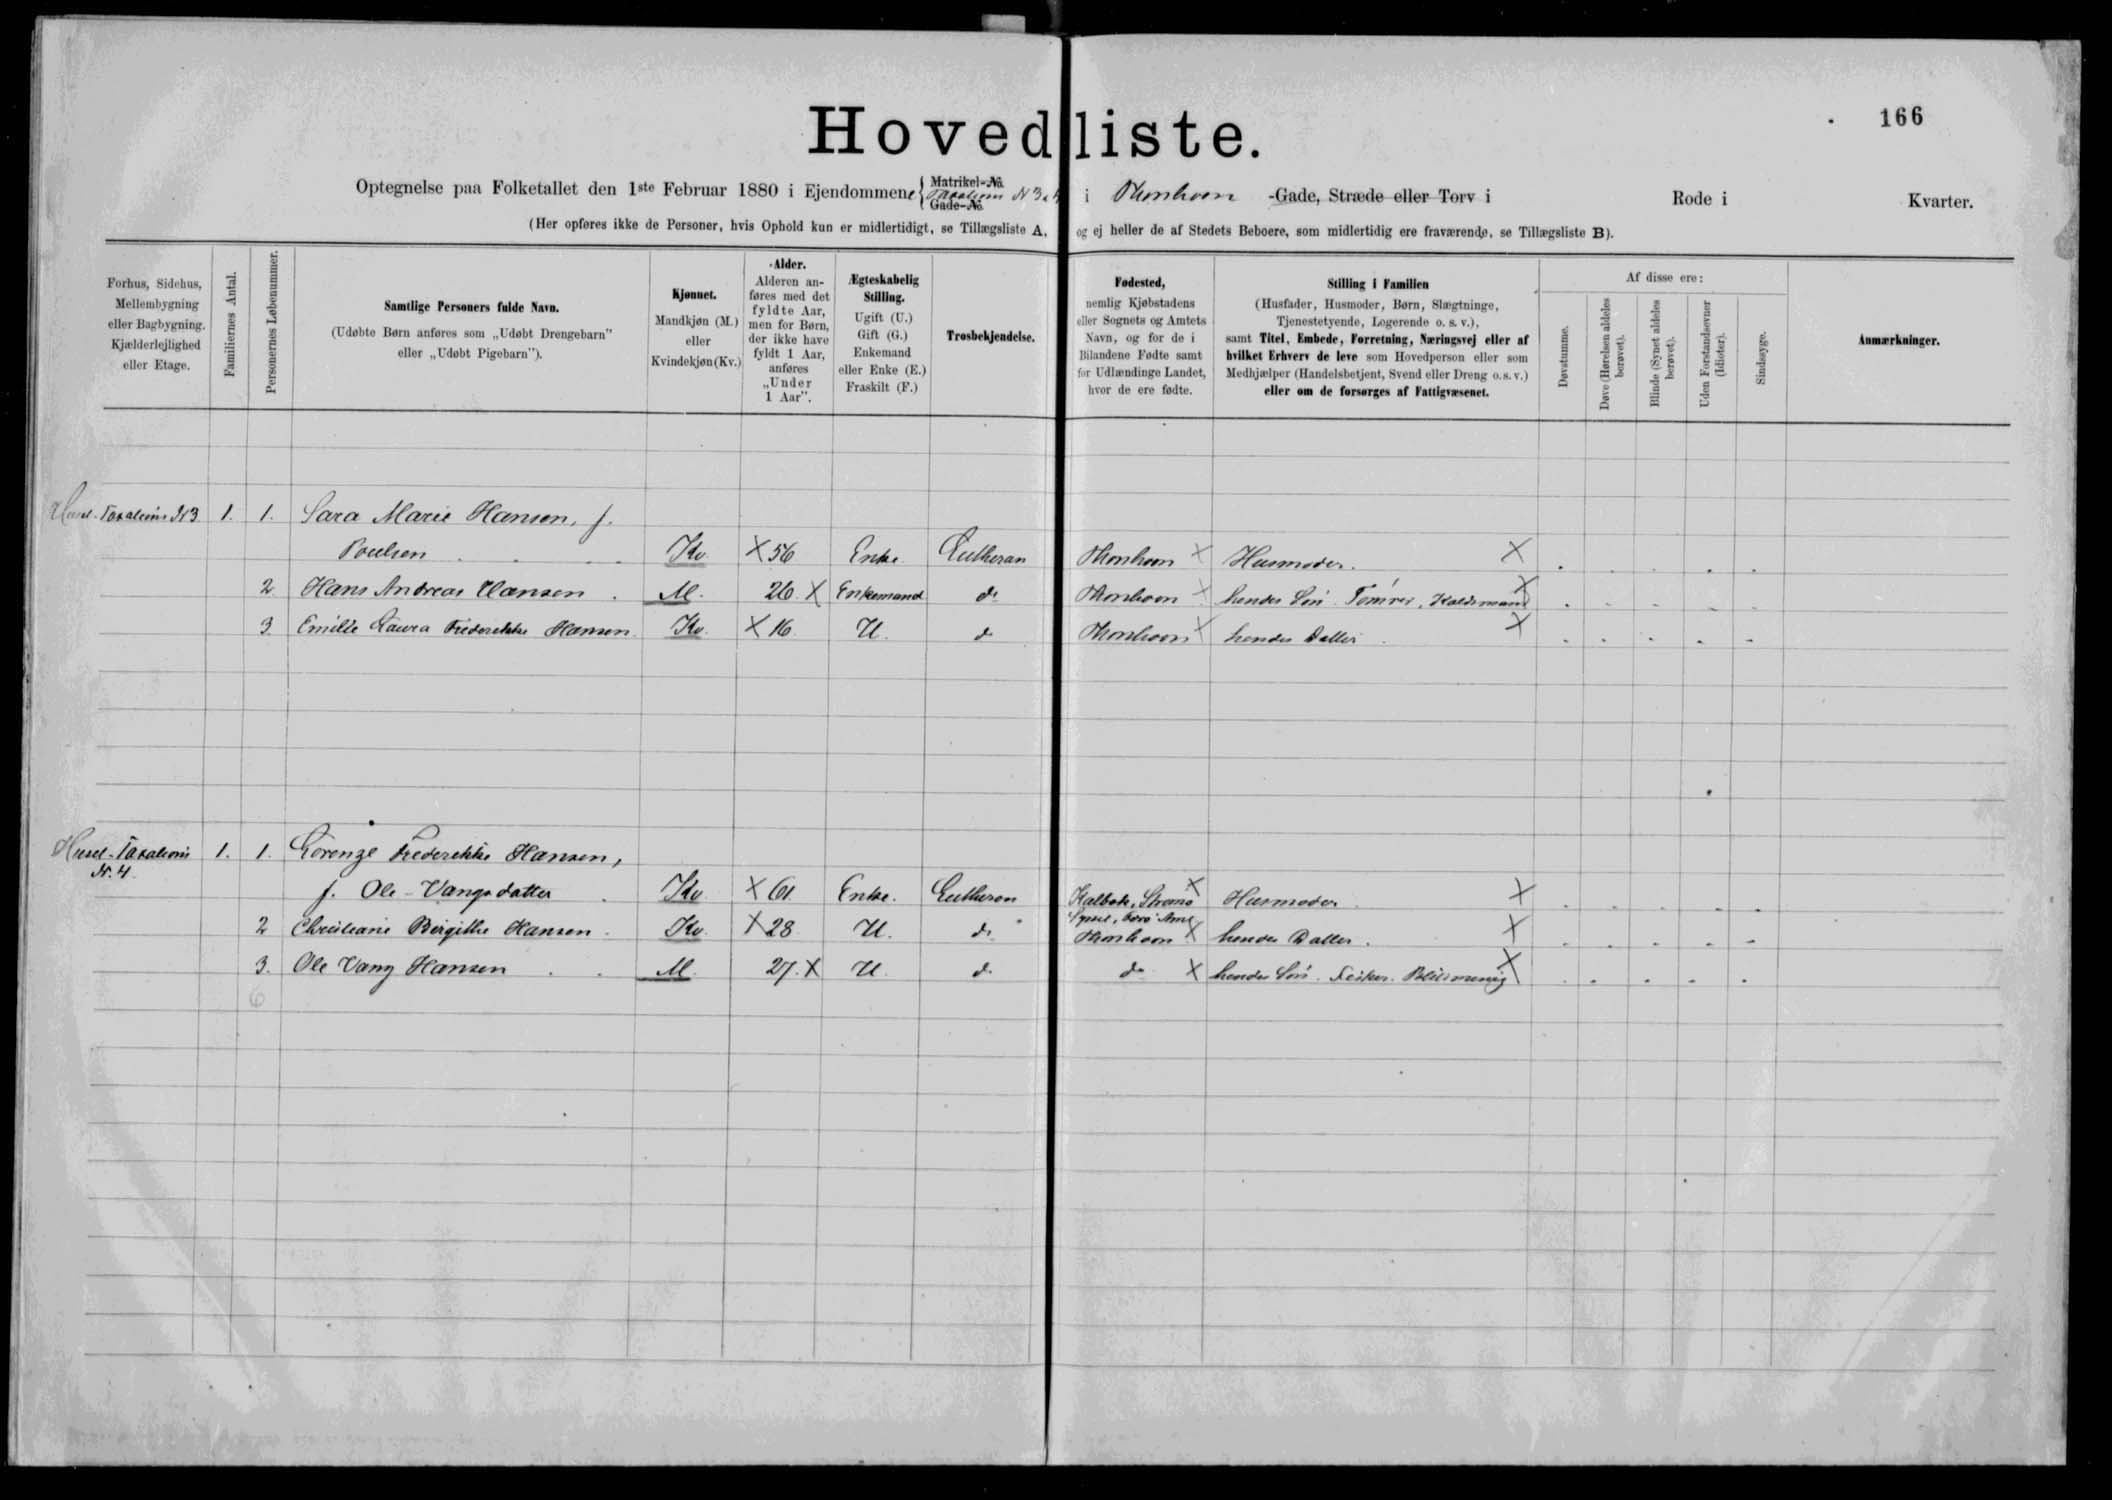 Hovedliste.
166
Optegnelse paa Folketallet den 1ste Februar 1880 i Ejendommene { Matrikel-No. Taxations N 3 & 4 Gade-No. i Thorshavn -Gade, Stræde eller Torv i Rode i Kvarter.
(Her opføres ikke de Personer, hvis Ophold kun er midlertidigt, se Tillægsliste A, og ej heller de af Stedets Beboere, som midlertidig ere fraværende, se Tillægsliste B).
Forhus, Sidehus, Mellembygning eller Bagbygning. Kjælderlejlighed eller Etage.
Familiernes Antal.
Personernes Løbenummer.
Samtlige Personers fulde Navn.
(Udøbte Børn anføres som „Udøbt Drengebarn” eller „Udøbt Pigebarn”).
Kjønnet.
Mandkjøn (M.) eller Kvindekjøn (Kv.)
Alder.
Alderen anføres med det fyldte Aar, men for Børn, der ikke have fyldt 1 Aar, anføres „Under 1 Aar”.
Ægteskabelig Stilling.
Ugift (U.) Gift (G.) Enkemand eller Enke (E.) Fraskilt (F.)
Trosbekjendelse.
Fødested,
nemlig Kjøbstadens eller Sognets og Amtets Navn, og for de i Bilandene Fødte samt for Udlændinge Landet, hvor de ere fødte.
Stilling i Familien
(Husfader, Husmoder, Børn, Slægtninge, Tjenestetyende, Logerende o. s. v.),
samt Titel, Embede, Forretning, Næringsvej eller af hvilket Erhverv de leve som Hovedperson eller som Medhjælper (Handelsbetjent, Svend eller Dreng o. s. v.) eller om de forsørges af Fattigvæsenet.
Af disse ere:
Døvstumme.
Døve (Hørelsen aldeles berøvet).
Blinde (Synet aldeles berøvet).
Uden Forstandsevner (Idioter).
Sindssyge.
Anmærkninger.
Huset-Taxations N 3 1. 1. Sara Marie Hansen, f.
Poulsen Kv. X 56 Enke Lutheran Thorshavn X Husmoder. X
2 Hans Andreas Hansen M. 26. X Enkemand do Thorshavn X hendes Søn. Tømrer, X
3. Emilie Laura Frederikke Hansen Kv. X 16 U. do Thorshavn X hendes Datter. X
Huset-Taxations N. 4. 1. 1. Lorenze Frederikke Hansen,
f. Ole-Vangsdatter Kv. X 61 Enke. Lutheran Kalbak, Strømø Syssel, Færø Amt X Husmoder X
2 Christiane Birgithe Hansen Kv. X 28 U. do Thorshavn X hendes Datter. X
3. Ole Vang Hansen M. 27. X U. do do X hendes Søn. Fisker. X
6